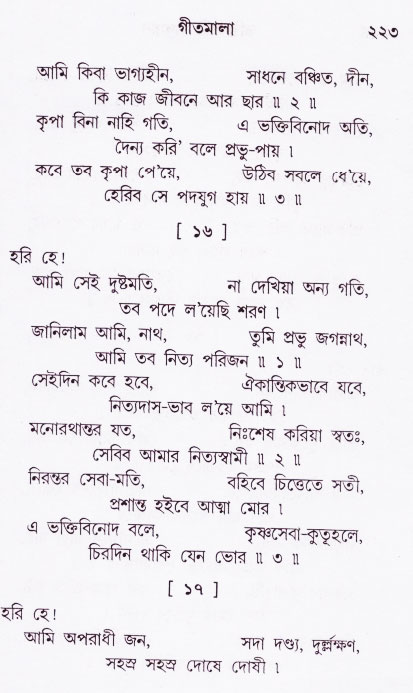 গীতমালা ২২৩
আমি কিবা ভাগ্যহীন, সাধনে বঞ্চিত, দীন,
কি কাজ জীবনে আর ছার ॥ ২ ॥
কৃপা বিনা নাহি গতি, এ ভক্তিবিনোদ অতি,
দৈন্য করি' বলে প্রভু-পায় ।
কবে তব কৃপা পে'য়ে, উঠিব সবলে ধে'য়ে,
হেরিব সে পদযুগ হায় ॥ ৩ ॥
[ ১৬ ]
হরি হে!
আমি সেই দুষ্টমতি, না দেখিয়া অন্য গতি,
তব পদে ল'য়েছি শরণ ।
জানিলাম আমি, নাথ, তুমি প্রভু জগন্নাথ,
আমি তব নিত্য পরিজন ॥ ১ ॥
সেইদিন কবে হবে, ঐকান্তিকভাবে যবে,
নিত্যদাস-ভাব ল'য়ে আমি ।
মনোরথান্তর যত, নিঃশেষ করিয়া স্বতঃ,
সেবিব আমার নিত্যস্বামী ॥ ২ ॥
নিরন্তর সেবা-মতি, বহিবে চিত্তেতে সতী,
প্রশান্ত হইবে আত্মা মোর ।
এ ভক্তিবিনোদ বলে, কৃষ্ণসেবা-কুতূহলে,
চিরদিন থাকি যেন ভোর ॥ ৩ ॥
[ ১৭ ]
হরি হে!
আমি অপরাধী জন, সদা দণ্ড্য, দুর্ল্লক্ষণ,
সহস্র সহস্র দোষে দোষী ।